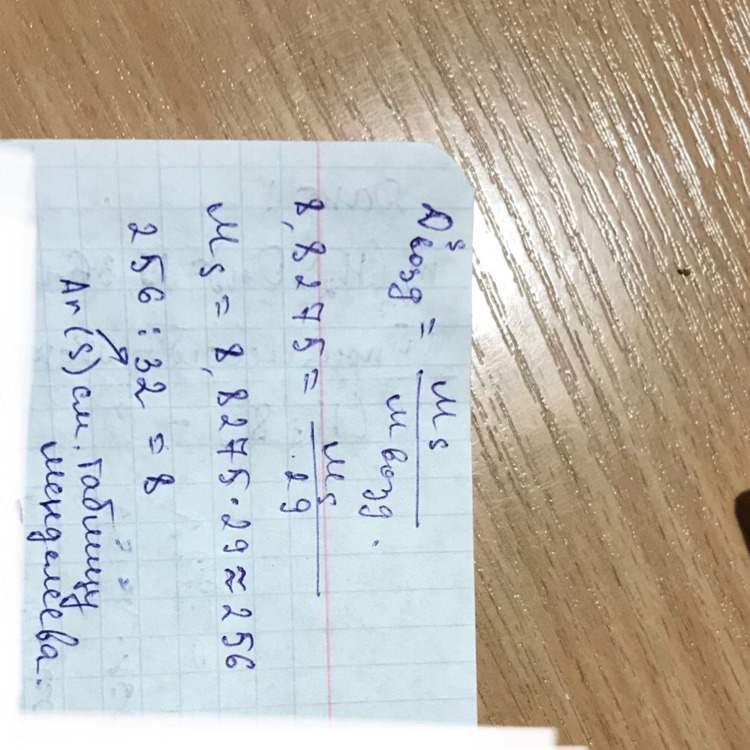 D^s возд = M_s / M возд.
8,8275 = M_s / 29
M_s = 8,8275 · 29 ≈ 256
256 : 32 = 8
Ar(S) см. таблицу
менделеева.